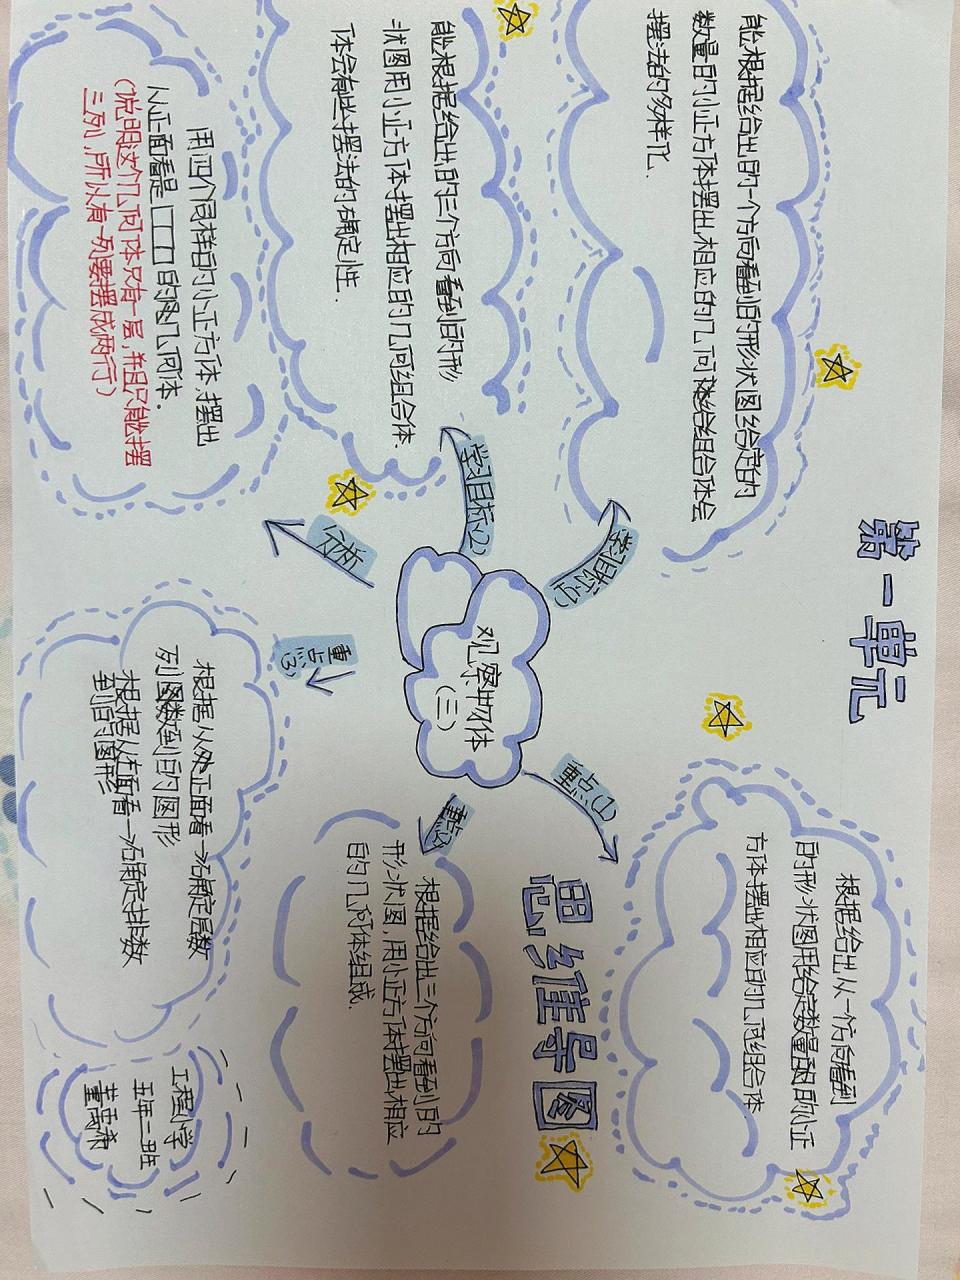 第一单元
思维导图
观察物体
(三)
学习目标(1)
能根据给出的一个方向看到的形状图给定的
数量的小正方体摆出相应的几何组合体会
摆法的多样化.
学习目标(2)
能根据给出的三个方向看到的形
状图用小正方体摆出相应的几何组合体.
体会有些摆法的确定性.
分析
用四个同样的小正方体,摆出
从正面看是的几何体.
(说明这个几何体只有一层,并且只能摆
三列,所以有一列要摆成两行)
重点(1)
根据给出从一个方向看到
的形状图用给定数量的小正
方体摆出相应的几何组合体
重点(2)
根据给出三个方向看到的
形状图,用小正方体摆出相应
的几何体组成.
重点(3)
根据从正面看→确定层数
列数到的图形
根据从左面看→确定排数
到的图形
工程小学
五年二班